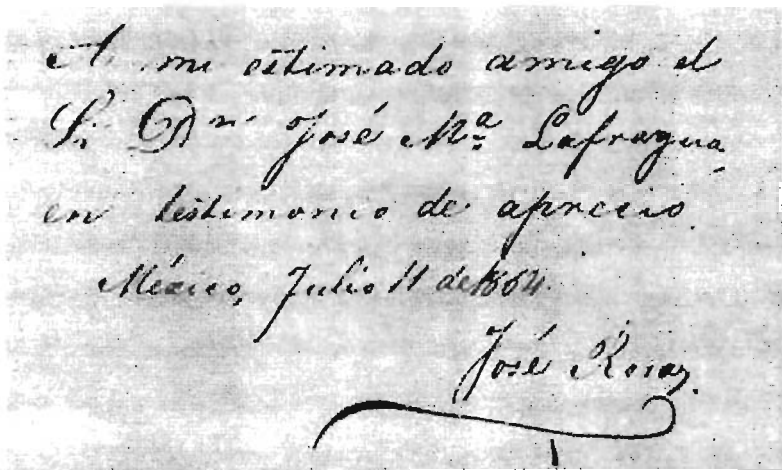 A mi estimado amigo el
Sr. Dn José Ma Lafragua,
en testimonio de aprecio.
México, Julio 11 de 1864.
José Rosas